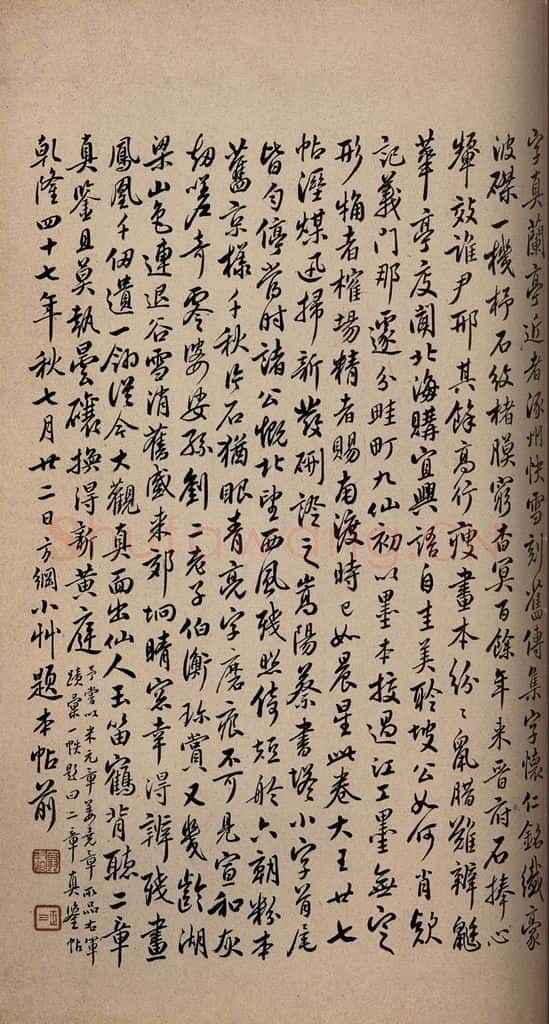 字真蘭亭近者涿州快雪刻舊傳集字懷仁銘纖豪
波磔一機杼石紋楮膜窮杳冥百餘年來晉府石捧心
顰效誰尹邢其餘高行瘦畫本紛〻鼠腊難辨
華亭度閣北海購宜興語自生美聆坡公如何肖欵
記義門那遽分畦町九仙初以墨本接過江工墨無定
形獝者榷場精者賜南渡時已如晨星此卷大王廿七
帖溼煤迅掃新發硎證之嵩陽蔡書塔小字首尾
皆勻停當時諸公慨北望西風殘照倚短舲六朝粉本
舊京樣千秋片石猶眼青亮字磨痕不可見宣和灰
劫嗟奇零婆娑孫劉二老子伯衡珍賞又幾齡湖
梁山色連退谷雪消舊感來郊坰晴窓幸得辨殘畫
鳳凰千仞遺一翎從今大觀真面出仙人玉笛鶴背聽二章
真鑒且莫執曇礦換得新黃庭
予嘗以米元章姜堯章所品右軍
蹟彙一帙題曰二章真鑒帖
乾隆四十七年秋七月廿二日方綱小艸題本帖前